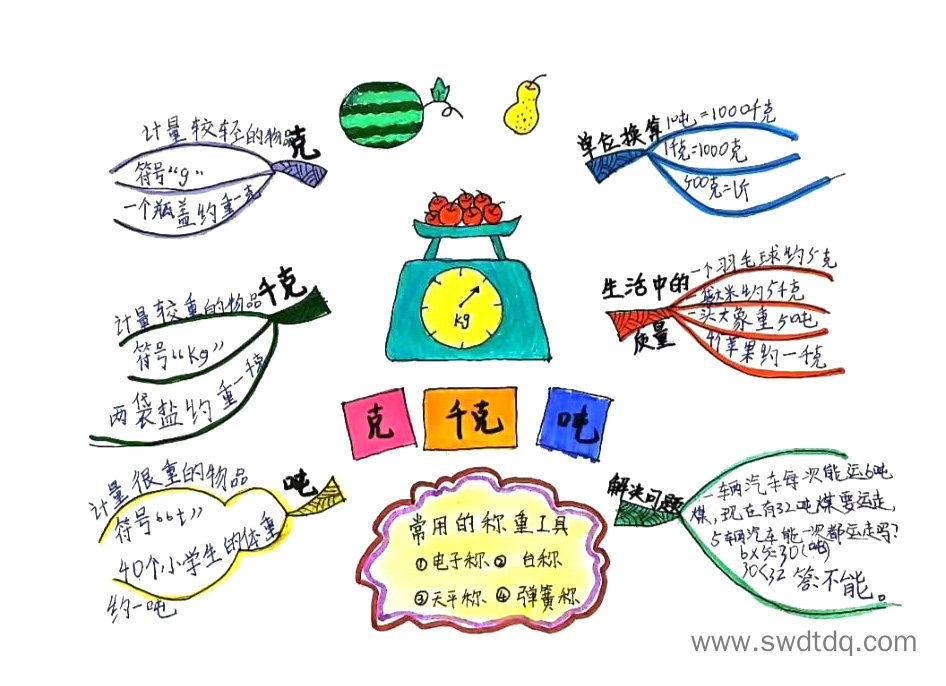 克
计量较轻的物品
符号“g”
一个瓶盖约重一克
千克
计量较重的物品
符号“kg”
两袋盐约重一千克
吨
计量很重的物品
符号“t”
40个小学生的体重
约一吨
kg
克 千克 吨
常用的称重工具
①电子称② 台称
③天平称④弹簧称
单位换算
1吨=1000千克
1千克=1000克
500克=1斤
生活中的
质量
一个羽毛球约5克
一袋大米约5千克
一头大象重50吨
4个苹果约一千克
解决问题
一辆汽车每次能运6吨
煤,现在有32吨煤要运走,
5辆汽车能一次都运走吗?
6×5=30(吨)
30<32 答:不能。
www.swdtdq.com